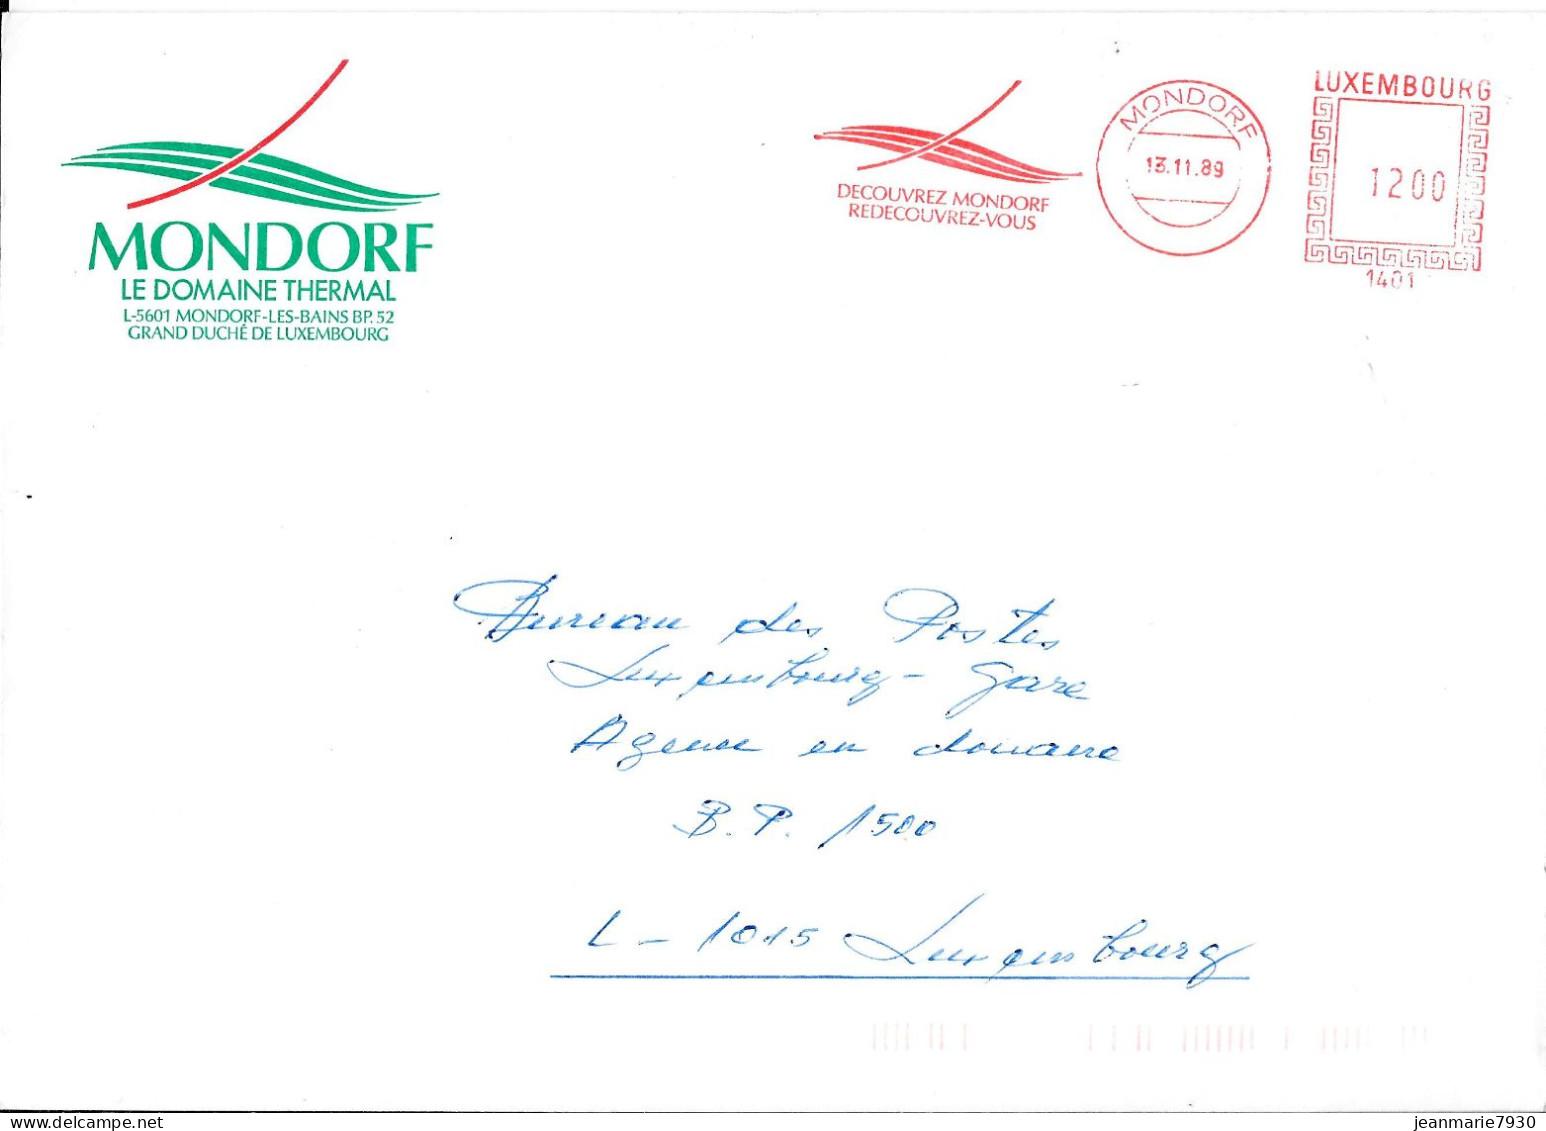 MONDORF
LE DOMAINE THERMAL
L-5601 MONDORF-LES-BAINS BP. 52
GRAND DUCHÉ DE LUXEMBOURG
DECOUVREZ MONDORF
REDECOUVREZ-VOUS
MONDORF
13.11.89
LUXEMBOURG
1200
1401
Bureau des Postes
Luxembourg - Gare
Agence en douane
B.P. 1500
L - 1015 Luxembourg
jeanmarie7930